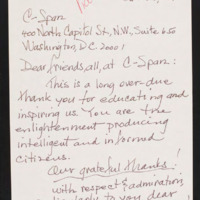 C-Span
400 North Capitol St., N.W., Suite 650
Washington, D.C. 20001
Dear friends, all, at C-Span:
This is a long over-due
thank you for educating and
inspiring us. You are true
enlightenment producing
intelligent and informed
citizens.
Our grateful thanks!
with respect & admiration,
to you dear